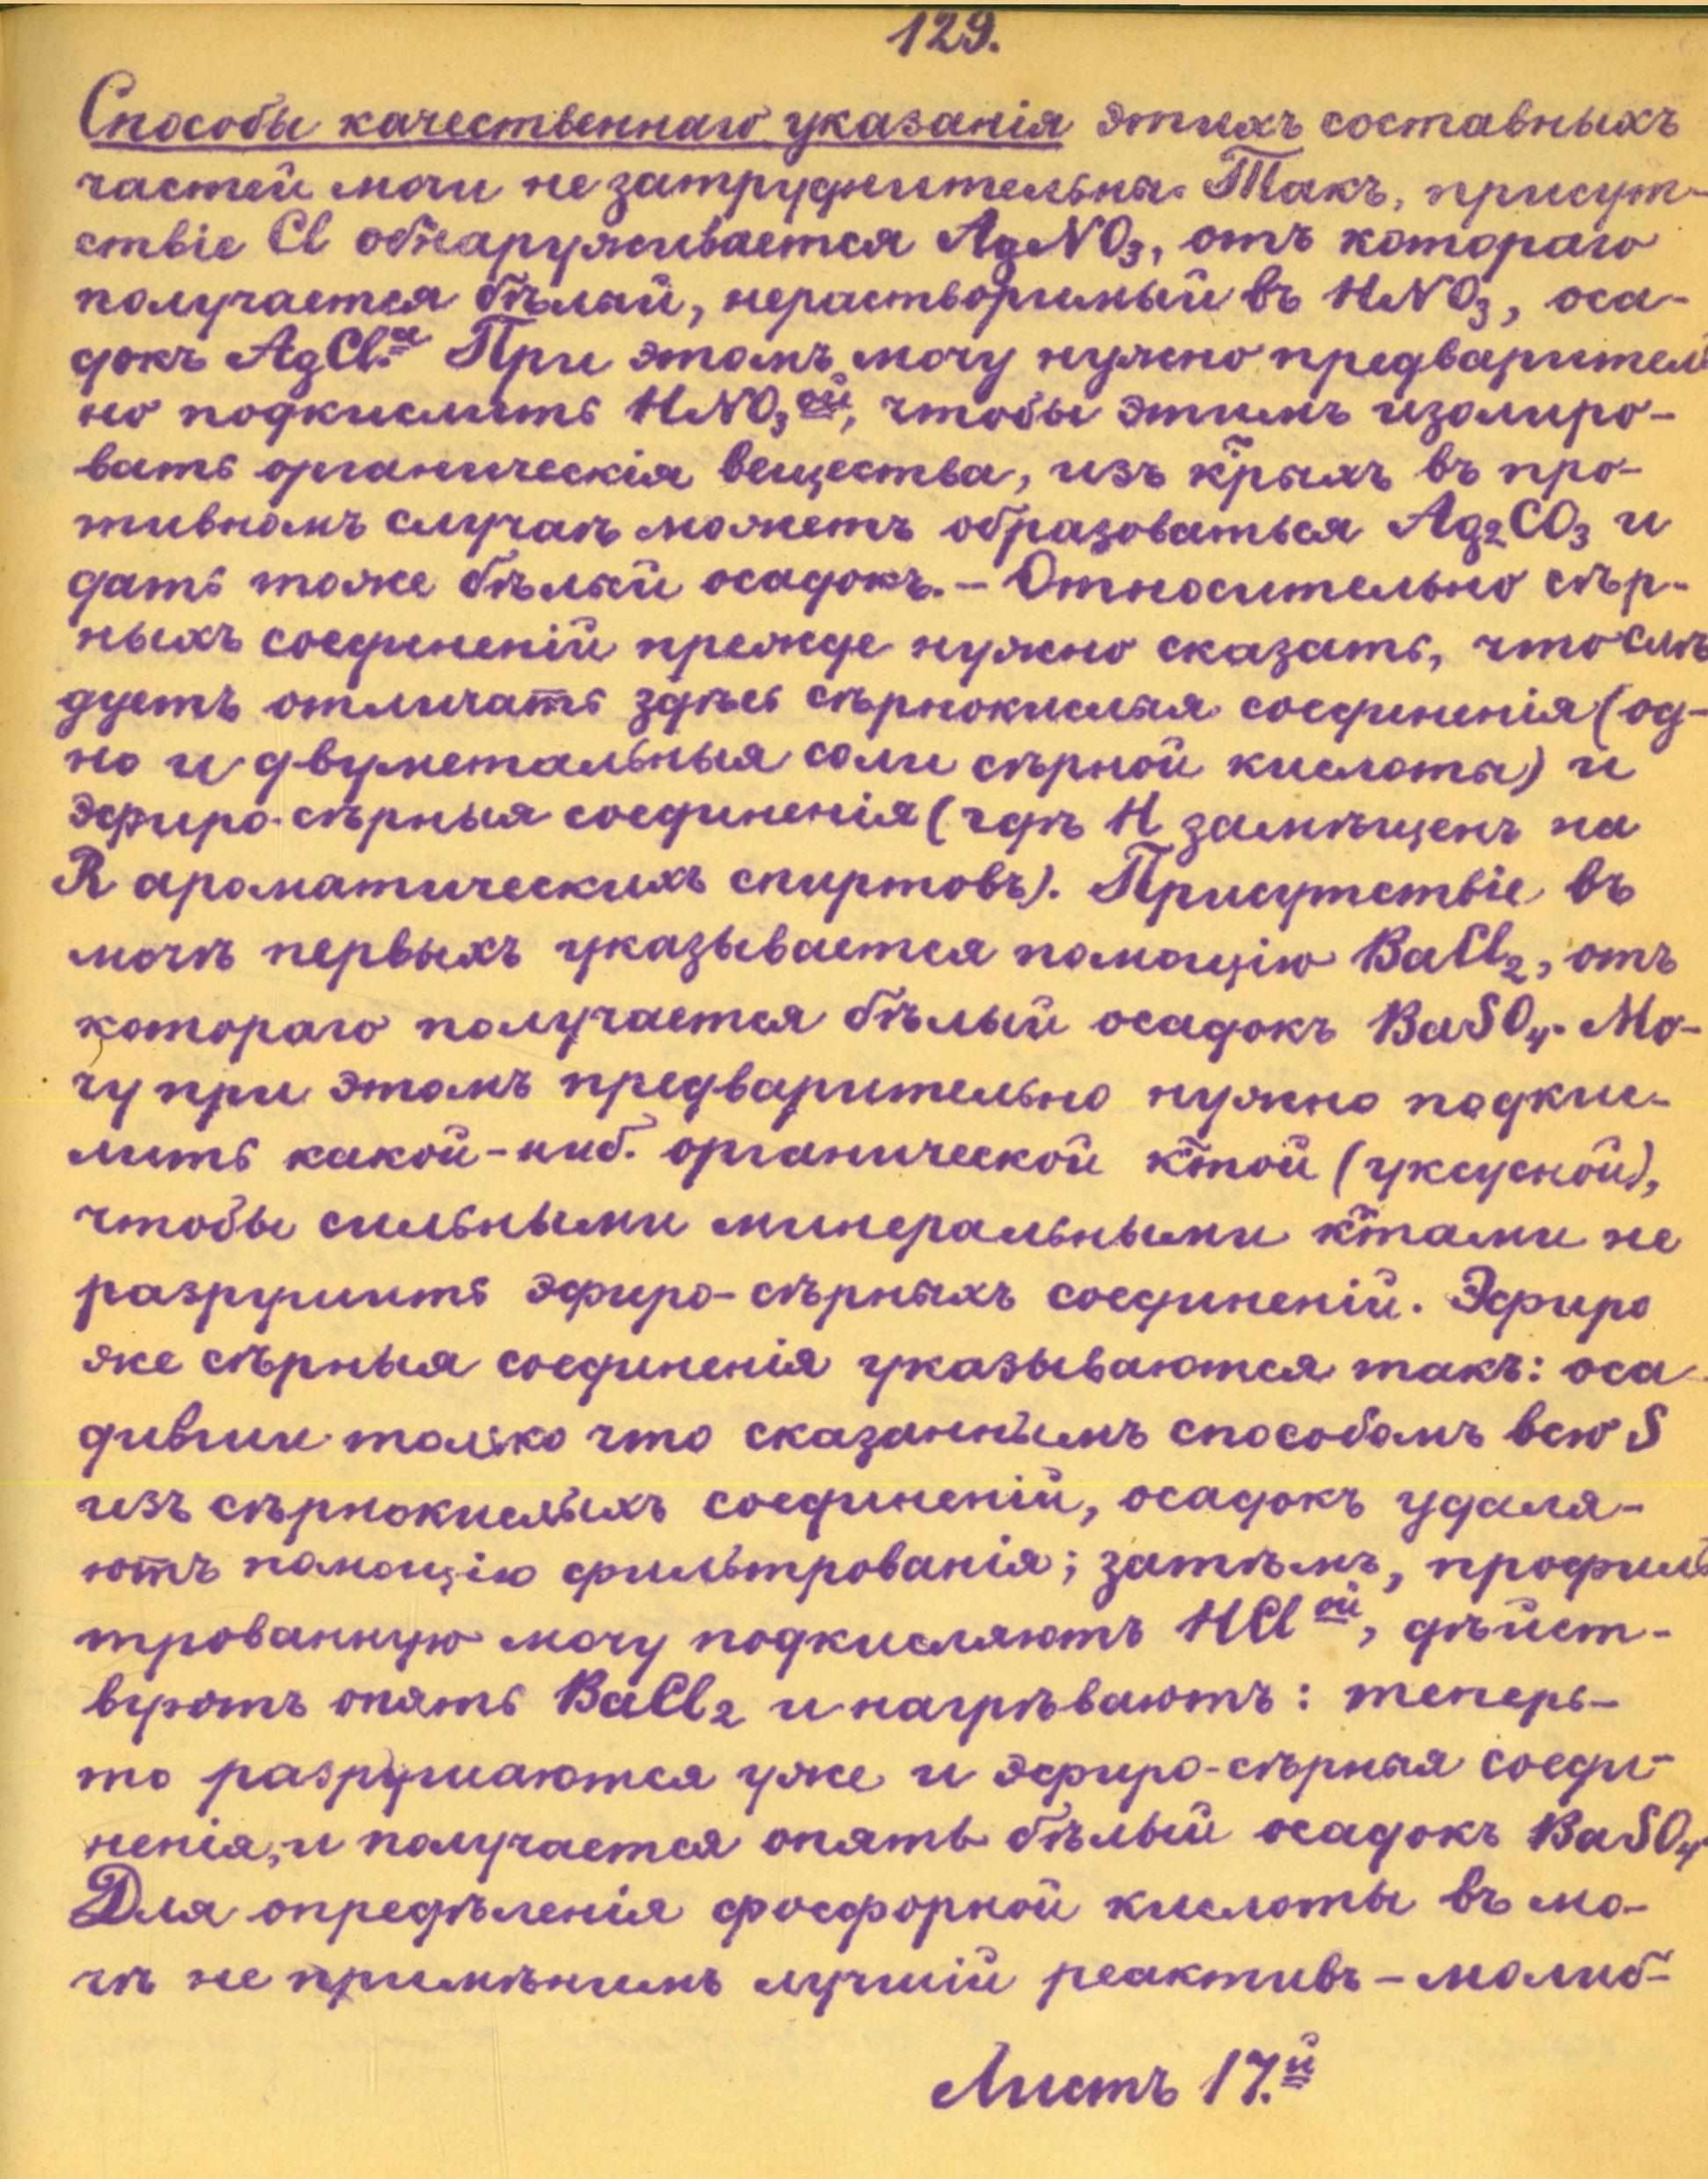 129.
Способы качественнаго указанія этихъ составныхъ
частей мочи не затруднительны. Такъ, присут-
ствіе Cl обнаруживается AgNO₃, отъ котораго
получается бѣлый, нерастворимый въ HNO₃, оса-
докъ AgCl.ᵃ При этомъ мочу нужно предварител
но подкислить HNO₃ᵒй, чтобы этимъ изолиро-
вать органическія вещества, изъ к̃рыхъ въ про-
тивномъ случаѣ можетъ образоваться Ag₂CO₃ и
дать тоже бѣлый осадокъ. – Относительно сѣр-
ныхъ соединеній прежде нужно сказать, что слѣ
дуетъ отличать здѣсь сѣрнокислыя соединенія (од-
но и двуметальныя соли сѣрной кислоты) и
эфиро-сѣрныя соединенія (гдѣ H замѣщенъ на
R ароматическихъ спиртовъ). Присутствіе въ
мочѣ первыхъ указывается помощію BaCl₂, отъ
котораго получается бѣлый осадокъ BaSO₄. Мо-
чу при этомъ предварительно нужно подкис-
лить какой-ниб. органической к̃той (уксусной),
чтобы сильными минеральными к̃тами не
разрушить эфиро-сѣрныхъ соединеній. Эфиро
же сѣрныя соединенія указываются такъ: оса-
дивши только что сказаннымъ способомъ всю S
изъ сѣрнокислыхъ соединеній, осадокъ удаля-
ютъ помощію фильтрованія; затѣмъ, профиль
трованную мочу подкисляютъ HClᵒй, дѣйст-
вуютъ опять BaCl₂ и нагрѣваютъ: теперь-
то разрушаются уже и эфиро-сѣрныя соеди-
ненія, и получается опять бѣлый осадокъ BaSO₄
Для опредѣленія фосфорной кислоты въ мо-
чѣ не примѣнимъ лучшій реактивъ – молиб-
Листъ 17.й